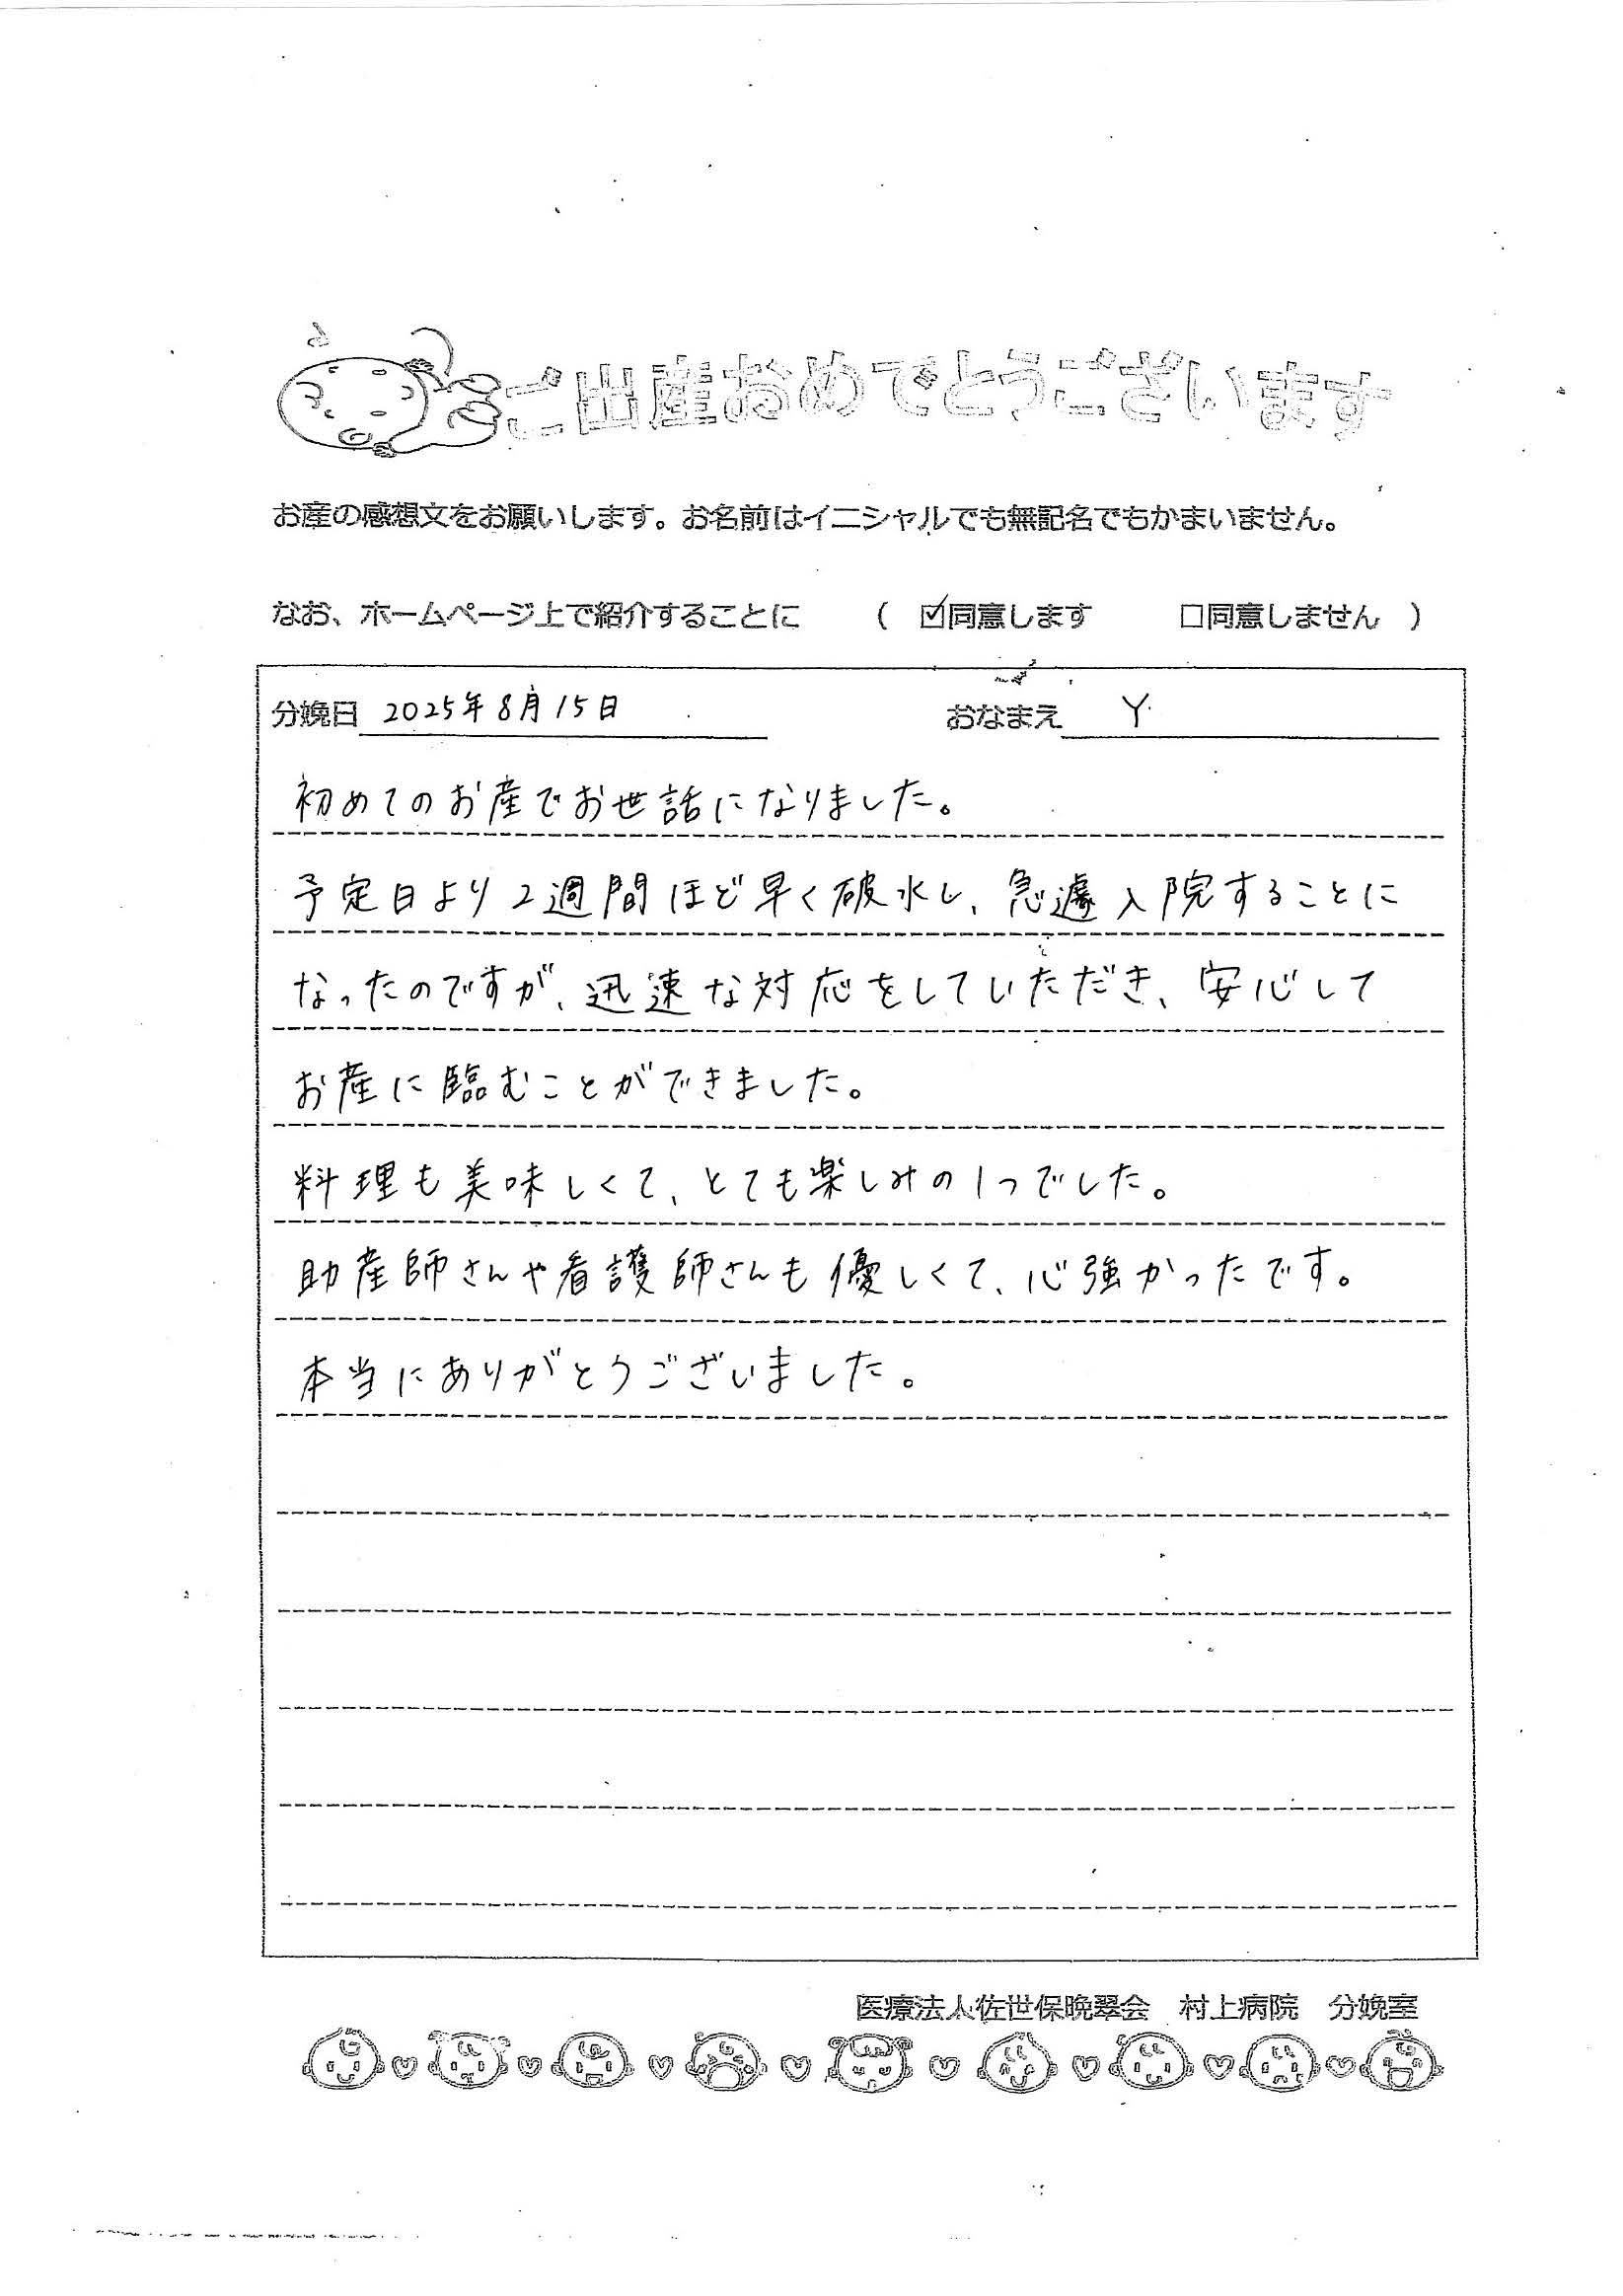 ご出産おめでとうございます
お産の感想文をお願いします。お名前はイニシャルでも無記名でもかまいません。
なお、ホームページ上で紹介することに （ ☑同意します □同意しません ）
分娩日 2025年8月15日 おなまえ Y
初めてのお産でお世話になりました。
予定日より2週間ほど早く破水し、急遽入院することに
なったのですが、迅速な対応をしていただき、安心して
お産に臨むことができました。
料理も美味しくて、とても楽しみの1つでした。
助産師さんや看護師さんも優しくて、心強かったです。
本当にありがとうございました。
医療法人佐世保晩翠会 村上病院 分娩室